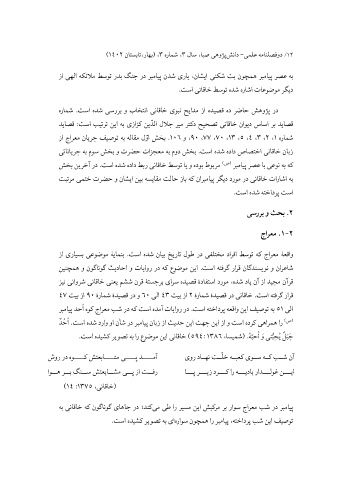 ۱۲/ دوفصلنامه علمی- دانش‌پژوهی صبا، سال ۳، شماره ۳، (بهار،تابستان ۱۴۰۲)
به عصر پیامبر همچون بت شکنی ایشان، یاری شدن پیامبر در جنگ بدر توسط ملائکه الهی از
دیگر موضوعات اشاره شده توسط خاقانی است.
در پژوهش حاضر ده قصیده از مدایح نبوی خاقانی انتخاب و بررسی شده است. شماره
قصاید بر اساس دیوان خاقانی تصحیح دکتر میر جلال الدّین کزازی به این ترتیب است: قصاید
شماره ۱، ۲، ۳، ۴، ۵، ۱۳، ۷۰، ۷۷، ۹۰، و ۱۰۶. بخش اوّل مقاله به توصیف جریان معراج از
زبان خاقانی اختصاص داده شده است. بخش دوم به معجزات حضرت و بخش سوم به جریاناتی
که به نوعی با عصر پیامبر (ص) مربوط بوده و یا توسط خاقانی ربط داده شده است. در آخرین بخش
به اشارات خاقانی در مورد دیگر پیامبران که باز حالت مقایسه بین ایشان و حضرت ختمی مرتبت
است پرداخته شده است.
۲. بحث و بررسی
۱-۲. معراج
واقعهٔ معراج که توسط افراد مختلفی در طول تاریخ بیان شده است. بنمایهٔ موضوعی بسیاری از
شاعران و نویسندگان قرار گرفته است. این موضوع که در روایات و احادیث گوناگون و همچنین
قرآن مجید از آن یاد شده، مورد استفادهٔ قصیده سرای برجستهٔ قرن ششم یعنی خاقانی شروانی نیز
قرار گرفته است. خاقانی در قصیدهٔ شمارهٔ ۲ از بیت ۴۳ الی ۶۰ و در قصیدهٔ شمارهٔ ۹۰ از بیت ۴۷
الی ۵۱ به توصیف این واقعه پرداخته است. در روایات آمده است که در شب معراج کوه أحد پیامبر
(ص) را همراهی کرده است و از این جهت این حدیث از زبان پیامبر در شأن او وارد شده است. اُحُدٌ
جَبَلٌ یُحِبُّنی وَ اُحِبّهُ. (شمیسا، ۱۳۸۶: ۵۹۴) خاقانی این موضوع را به تصویر کشیده است.
آن شب کـه سـوی کعبـه خلّـت نهـاد روی آمـــد پـــی متـــابعتش کـــوه در روش
ایـــن غولـــدار بادیـــه را کـــرد زیـــر پـــا رفـــت از پـــی مشـــایعتش ســـنگ بـــر هـــوا
(خاقانی، ۱۳۷۵: ۱۴)
پیامبر در شب معراج سوار بر مرکبش این مسیر را طی می‌کند؛ در جاهای گوناگون که خاقانی به
توصیف این شب پرداخته، پیامبر را همچون سواره‌ای به تصویر کشیده است.